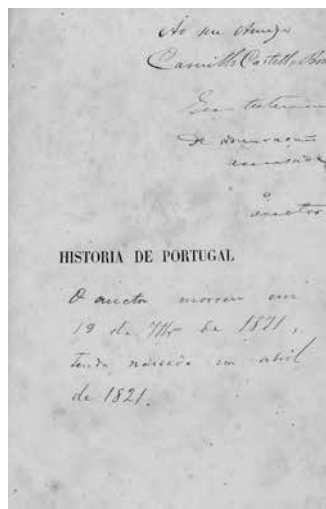 Ao seu amigo
Camillo Castello Bran
Em testemun
de admiração
o auctor
HISTORIA DE PORTUGAL
O auctor morreu em
19 de 7bro de 1871,
tendo nascido em abril
de 1821.